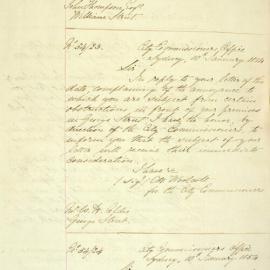 John Thompson, Esqr
William Street.
No 54/23.
City Commissioners Office
Sydney, 10th January 1854
Sir
In reply to your letter of the
date, complaining of the annoyance to
which you are subject from certain
obstructions in front of your premises
in George Street I have the honor, by
direction of the City Commissioners, to
inform you that the subject of your
letter will receive their immediate
consideration.
I have &c
for the City Commissioners
George Street.
No 54/24
City Commissioners Office
Sydney, 10th January 1854